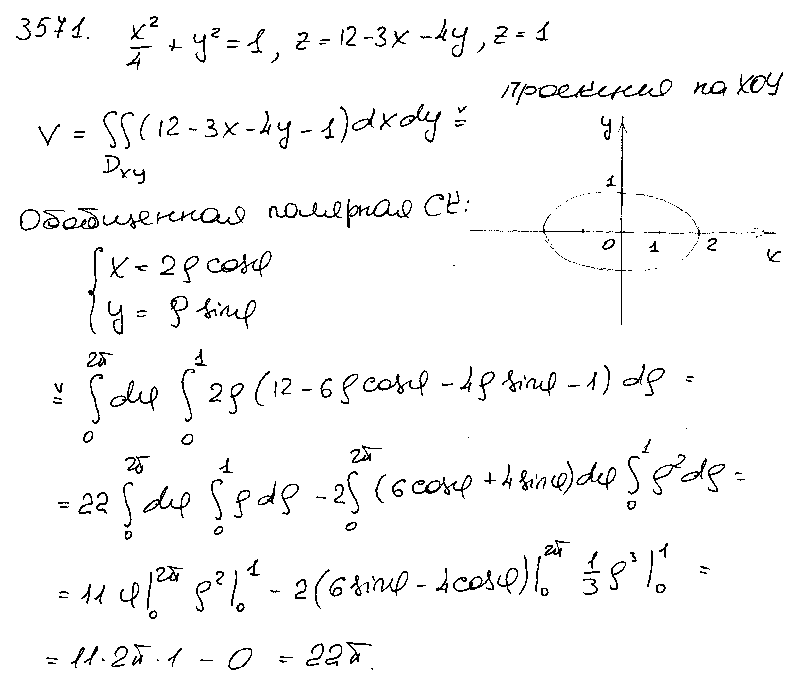 3571. x²/4 + y² = 1, z = 12 - 3x - 4y, z = 1
проекция на XOY
V = ∬_{Dxy} (12 - 3x - 4y - 1) dx dy =ᵛ
Обобщенная полярная СК:
{ x = 2ρ cosφ
y = ρ sinφ
y
1
0 1 2
x
=ᵛ ∫₀^{2π} dφ ∫₀^1 2ρ (12 - 6ρ cosφ - 4ρ sinφ - 1) dρ =
= 22 ∫₀^{2π} dφ ∫₀^1 ρ dρ - 2 ∫₀^{2π} (6 cosφ + 4 sinφ) dφ ∫₀^1 ρ² dρ =
= 11 φ|₀^{2π} ρ²|₀^1 - 2 (6 sinφ - 4 cosφ)|₀^{2π} 1/3 ρ³|₀^1 =
= 11 · 2π · 1 - 0 = 22π.